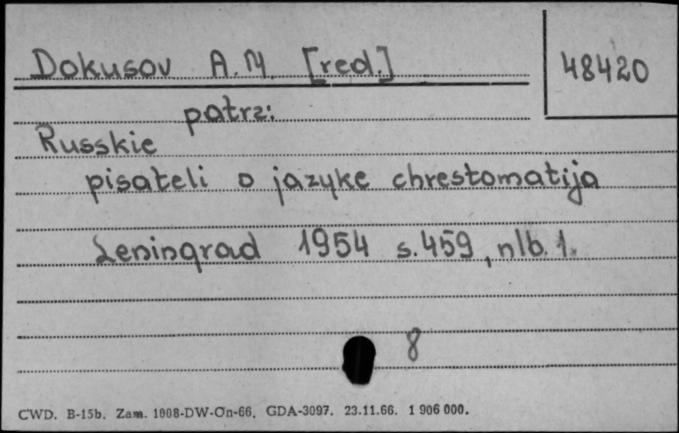 Dokusov A.M. [red.]
48420
patrz:
Russkie
pisateli o jazyke chrestomatija
Leningrad 1954 s. 459, nlb. 1.
8
CWD. B-15b. Zam. 1008-DW-On-66. GDA-3097. 23.11.66. 1 906 000.